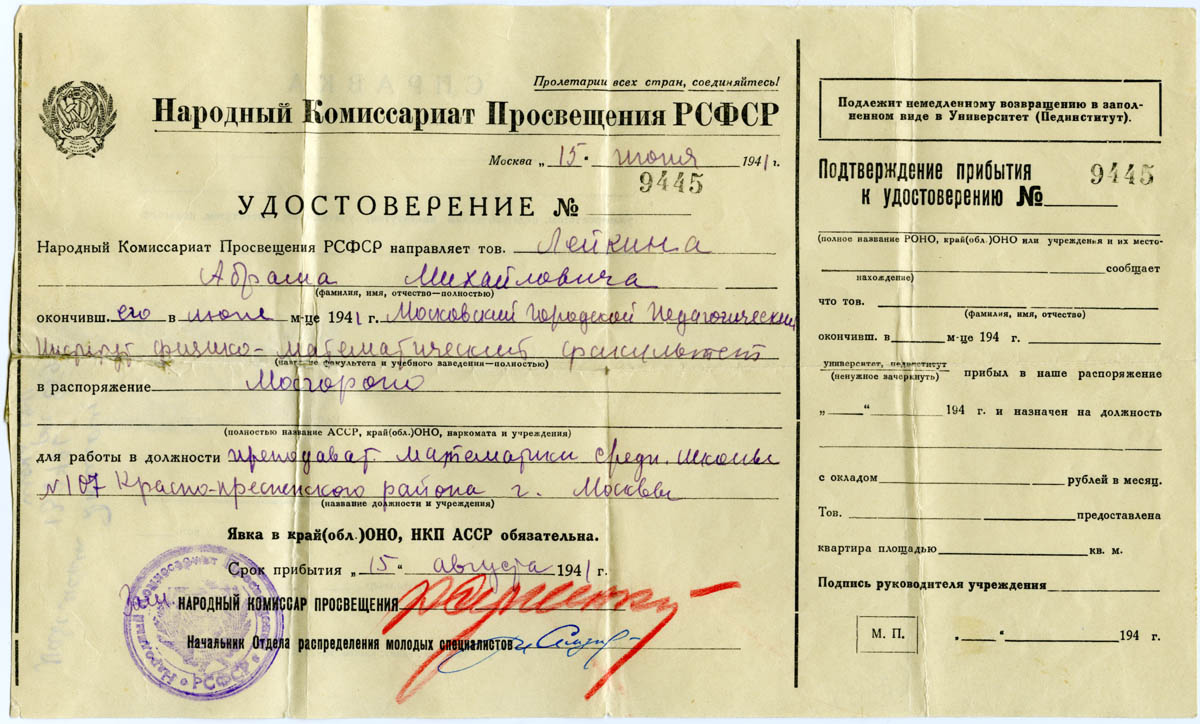 Пролетарии всех стран, соединяйтесь!
Народный Комиссариат Просвещения РСФСР
Москва „ 15 " июня 1941 г.
9445
УДОСТОВЕРЕНИЕ №
Народный Комиссариат Просвещения РСФСР направляет тов. Лейкина
Абрама Михайловича
(фамилия, имя, отчество—полностью)
окончивш. его в июне м-це 1941 г. Московский Городской Педагогический
Институт физико-математический факультет
(название факультета и учебного заведения—полностью)
в распоряжение Мосгороно
(полностью название АССР, край(обл.)ОНО, наркомата и учреждения)
для работы в должности преподават. математики средн. школы
№ 107 Красно-пресненского района г. Москвы
(название должности и учреждения)
Явка в край(обл.)ОНО, НКП АССР обязательна.
Срок прибытия „ 15 " августа 1941 г.
Зам. НАРОДНЫЙ КОМИССАР ПРОСВЕЩЕНИЯ
Начальник Отдела распределения молодых специалистов
Народный Комиссариат Просвещения РСФСР
Подлежит немедленному возвращению в запол-
ненном виде в Университет (Пединститут).
Подтверждение прибытия
к удостоверению № 9445
(полное название РОНО, край(обл.)ОНО или учреждения и их место-
сообщает
нахождение)
что тов.
(фамилия, имя, отчество)
окончивш. в м-це 194 г.
университет, пединститут
(ненужное зачеркнуть) прибыл в наше распоряжение
„ " 194 г. и назначен на должность
с окладом рублей в месяц.
Тов. предоставлена
квартира площадью кв. м.
Подпись руководителя учреждения
М. П. „ " 194 г.